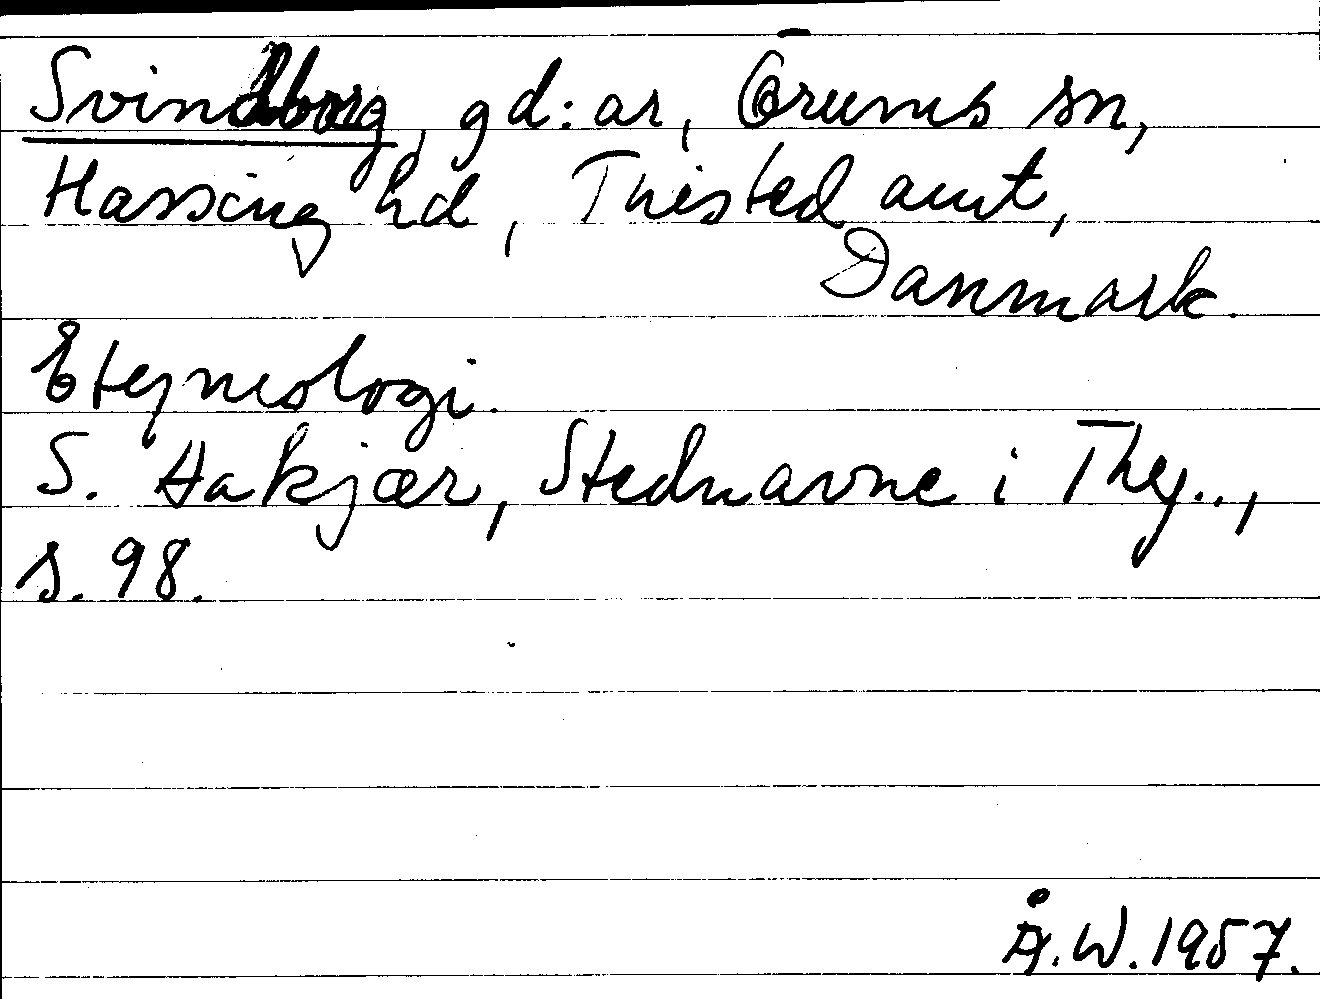 Svindborg, gd:ar, Örums sn,
Hassing hd, Thisted amt,
Danmark.
Etymologi.
S. Hakjær, Stednavne i Thy..,
s. 98.
Å.W. 1957.